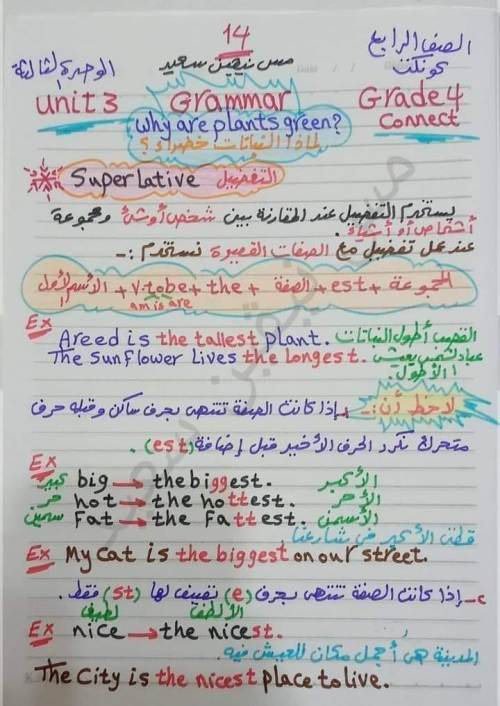 14
الصف الرابع
مس نيفين سعيد
الوحدة الثالثة
كونكت
unit 3 Grammar Grade 4
Connect
why are plants green?
لماذا النباتات خضراء؟
Superlative التفضيل
يستخدم التفضيل عند المقارنة بين شخص أو شئ ومجموعة
أشخاص أو أشياء.
عند عمل تفضيل مع الصفات القصيرة نستخدم :-
المجموعة + est + الصفة + the + v.tobe + الاسم الأول
am is are
Ex
A reed is the tallest plant. القصب أطول النباتات
The sunflower lives the longest. عباد الشمس يعيش
الأطول.
لاحظ أن:- ١- إذا كانت الصفة تنتهى بحرف ساكن وقبله حرف
متحرك نكرر الحرف الأخير قبل إضافة (est).
Ex
كبير big → the biggest. الأكبر
حر hot → the hottest. الأحر
سمين Fat → the Fattest. الأسمن
قطتى الأكبر فى شارعنا
Ex My cat is the biggest on our street.
٢- إذا كانت الصفة تنتهى بحرف (e) نضيف لها (st) فقط.
لطيف الألطف
Ex nice → the nicest.
المدينة هى أجمل مكان للعيش فيه.
The City is the nicest place to live.